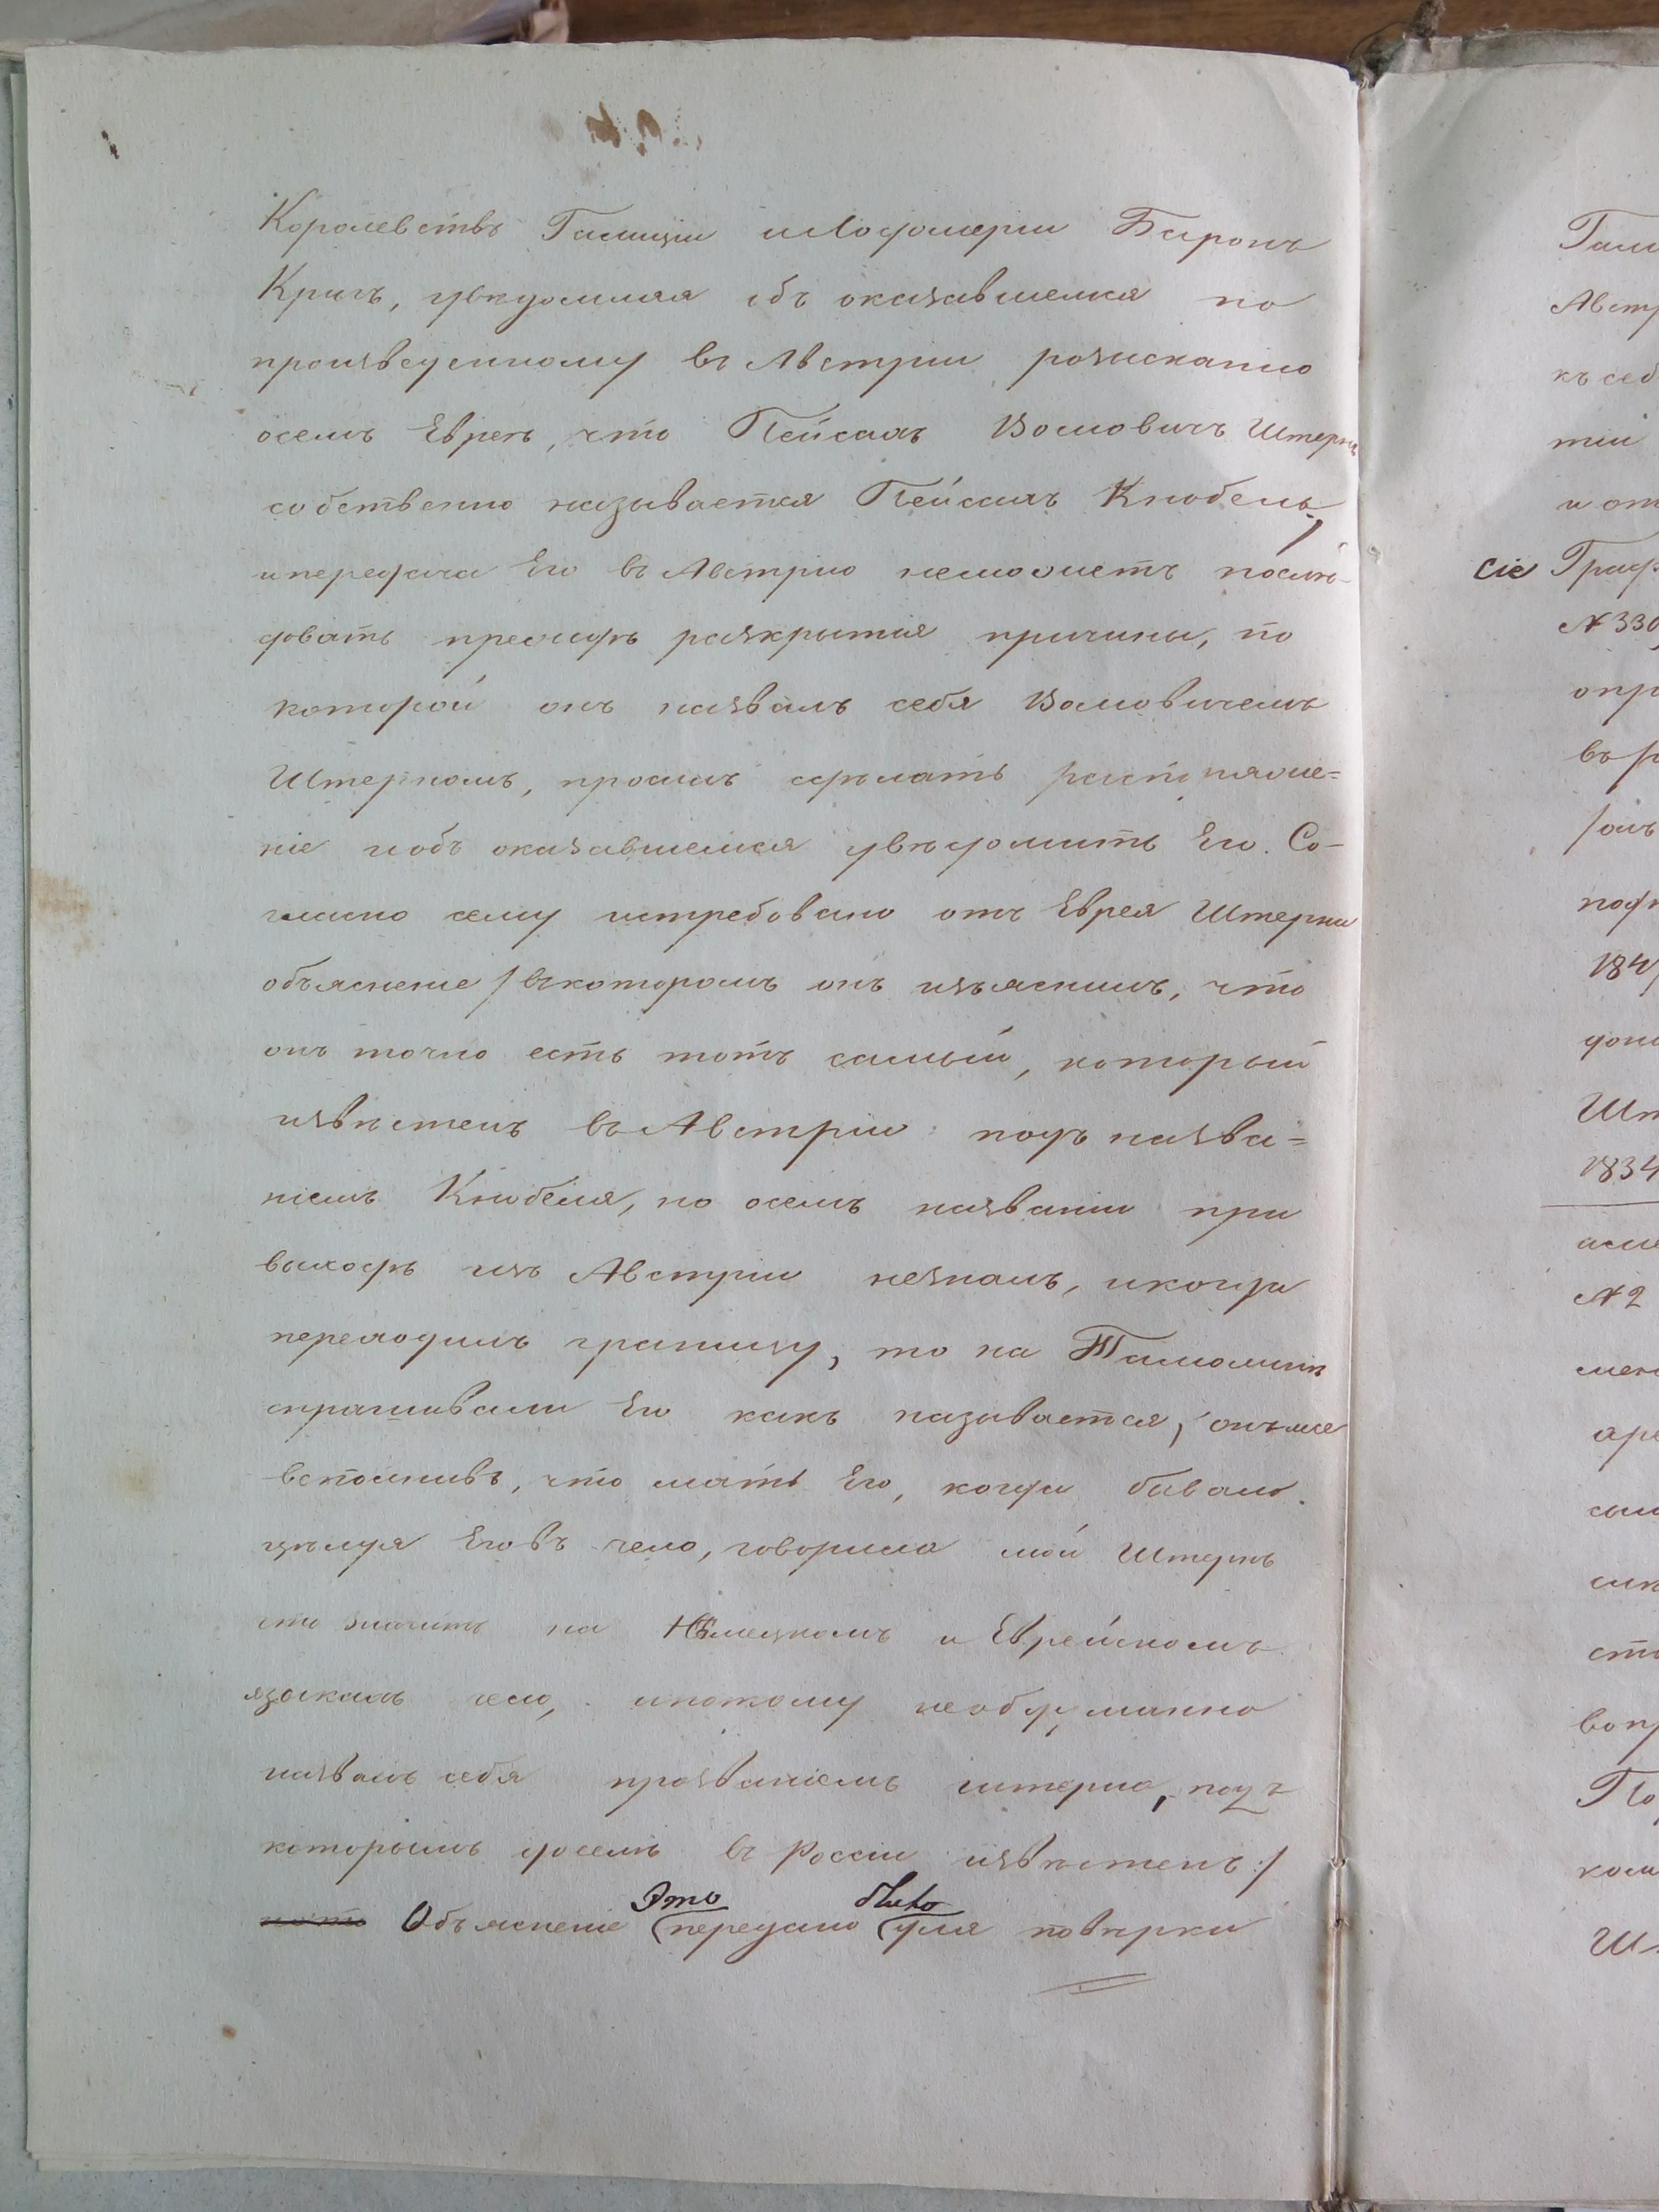 Королевствъ Галиціи и Лодомеріи Баронъ
Кригъ, увѣдомляя объ оказавшемся по
произведенному въ Австріи розысканію
осемъ Евреѣ, что Пейсахъ Вольовичъ Штернъ
собственно называется Пейсахъ Кнобель,
и передача Его въ Австрію неможетъ послѣ-
довать прежде раскрытія причины, по
которой онъ назвалъ себя Вольовичемъ
Штерномъ, просилъ сдѣлать распоряже=
ніе и объ оказавшемся увѣдомить Его. Со-
гласно сему истребовано отъ Еврея Штерна
объясненіе / въ которомъ онъ изъяснилъ, что
онъ точно есть тотъ самый, который
извѣстенъ въ Австріи подъ назва=
ніемъ Кнобеля, но осемъ названіи при
выходѣ изъ Австріи незналъ, и когда
переходилъ границу, то на Таможнѣ
спрашивали Его какъ называется, онъ же
вспомнивъ, что мать Его, когда бывало
цѣлуя Его въ чело, говорила мой Штернъ
что значитъ на Нѣмецкомъ и Еврейскомъ
языкахъ чело, и потому необдуманно
назвалъ себя прозваніемъ штерна, подъ
которымъ доселѣ въ Россіи извѣстенъ /
Объясненіе Это передано было для повѣрки
Гали
Австр
къ себ
тіи
и от
сіе Граф
№ 330
опр
въ р
подп
184
доно
Шт
1834
№ 2
аре
сто
вопр
По
ком
Ш